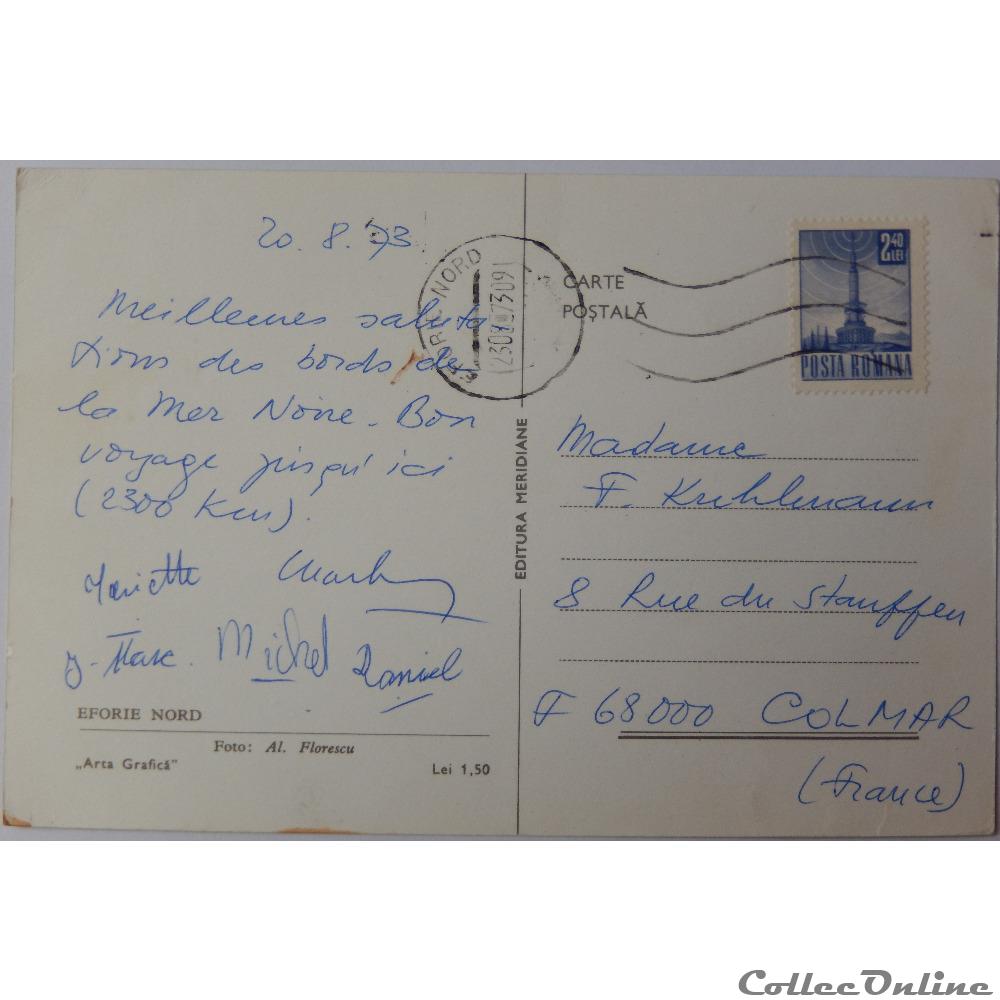 20. 8. 73
Meilleures saluta
tions des bords de
la Mer Noire. Bon
voyage jusqu'ici
(2300 Km).
Mariette
J-Marc. Michel Daniel
EFORIE NORD
Foto: Al. Florescu
„Arta Grafică” Lei 1,50
EDITURA MERIDIANE
EFORIE NORD
CARTE
POȘTALĂ
2,40
LEI
POSTA ROMANA
Madame
F. Kuhlmann
8 Rue du Stauffen
F 68000 COLMAR
(France)
CollecOnline